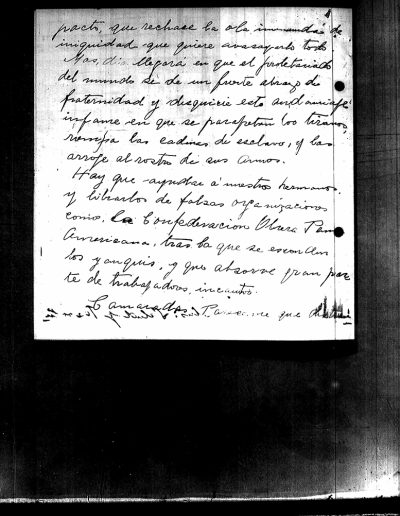 pacto, que rechase la ola inmunda de
iniquidad que quiere avasayarlo todo
Mas, dia llegará en que el proletariado
del mundo se de un fuerte abrazo de
fraternidad y desquicie este andamiaje
infame en que se parapetan los tiranos,
rompa las cadenas de esclavo, y las
arroje al rostro de sus amos.
Hay que ayudar á nuestros hermanos
y librarlos de falsas organizaciones
como, la Confederacion Obrera Pan
Americana, tras la que se escondan
los yanquis, y que absorve gran par
te de trabajadores incautos.
Camaradas: Pareceme que